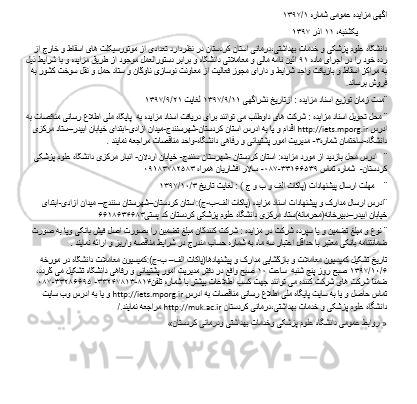 آگهی مزایده عمومی شماره ۱۳۹۷/۱
یکشنبه، ۱۱ آذر ۱۳۹۷
دانشگاه علوم پزشکی و خدمات بهداشتی،درمانی استان کردستان در نظردارد تعدادی از موتورسیکلت های اسقاط و خارج از
رده خود را در اجرای ماده ۹۱ آئین نامه مالی و معاملاتی دانشگاه و برابر دستورالعمل موجود از طریق مزایده و با شرایط ذیل
به مراکز اسقاط و بازیافت واحد شرایط و دارای مجوز فعالیت از معاونت نوسازی ناوگان و ستاد حمل و نقل سوخت کشور به
فروش برساند.
"مدت زمان توزیع اسناد مزایده : ازتاریخ نشرآگهی ۱۳۹۷/۹/۱۱ لغایت ۱۳۹۷/۹/۲۱
" محل تحویل اسناد مزایده : شرکت های داوطلب می توانند برای دریافت اسناد مزایده به پایگاه ملی اطلاع رسانی مناقصات به
آدرس http://iets.mporg.ir اقدام و یا به آدرس استان کردستان-شهرسنندج-میدان آزادی-ابتدای خیابان آبیدر-ستاد مرکزی
دانشگاه-ساختمان شماره۳- مدیریت امور پشتیبانی و رفاهی دانشگاه-واحد مناقصات مراجعه نمایند .
" آدرس محل بازدید از مورد مزایده: استان کردستان -شهرستان سنندج- خیابان اردلان- انبار مرکزی دانشگاه علوم پزشکی
کردستان- شماره تماس ۳۳۱۶۶۵۳۹-۰۸۷ سالار افشاریان همراه ۰۹۱۸۳۷۸۲۵۸۳
" مهلت ارسال پیشنهادات (پاکات الف و ب و ج ) : لغایت تاریخ ۱۳۹۷/۱۰/۳
"آدرس ارسال مدارک و پیشنهادات اسناد مزایده (پاکات الف-ب-ج):استان کردستان-شهرستان سنندج- میدان آزادی-ابتدای
خیابان آبیدر-دبیرخانه(محرمانه)ستاد مرکزی دانشگاه علوم پزشکی کردستان کد پستی۶۶۱۸۶۳۴۶۸۳
" نوع و مبلغ تضمین و یا سپرده شرکت در مزایده : شرکت کنندگان مبلغ تضمین را بصورت اصل فیش بانکی ویا به صورت
ضمانتنامه بانکی معتبر با حداقل اعتبار سه ماه به شماره حساب مندرج در شرایط مناقصه واریز و ارائه نمایند .
تاریخ تشکیل کمیسیون معاملات و بازگشایی مدارک و پیشنهادها(پاکات الف- ب-ج):کمیسیون معاملات دانشگاه در مورخه
۱۳۹۷/۱۰/۶ صبح روز پنج شنبه ساعت ۱۰ صبح واقع در دفتر مدیریت امور پشتیبانی و رفاهی دانشگاه تشکیل می گردد،
ضمنا شرکت های شرکت کننده می توانند جهت کسب اطلاعات بیشتر با شماره تلفن
تماس حاصل و یا به سایت پایگاه ملی اطلاع رسانی مناقصات به آدرس http://iets.mporg.ir و یا به آدرس وب سایت
دانشگاه علوم پزشکی و خدمات بهداشتی،درمانی کردستان http://muk.ac.ir مراجعه نمایند./
« روابط عمومی دانشگاه علوم پزشکی وخدمات بهداشتی ودرمانی کردستان»
۰۲۱-۸۸۳۴۹۶۷۰-۵